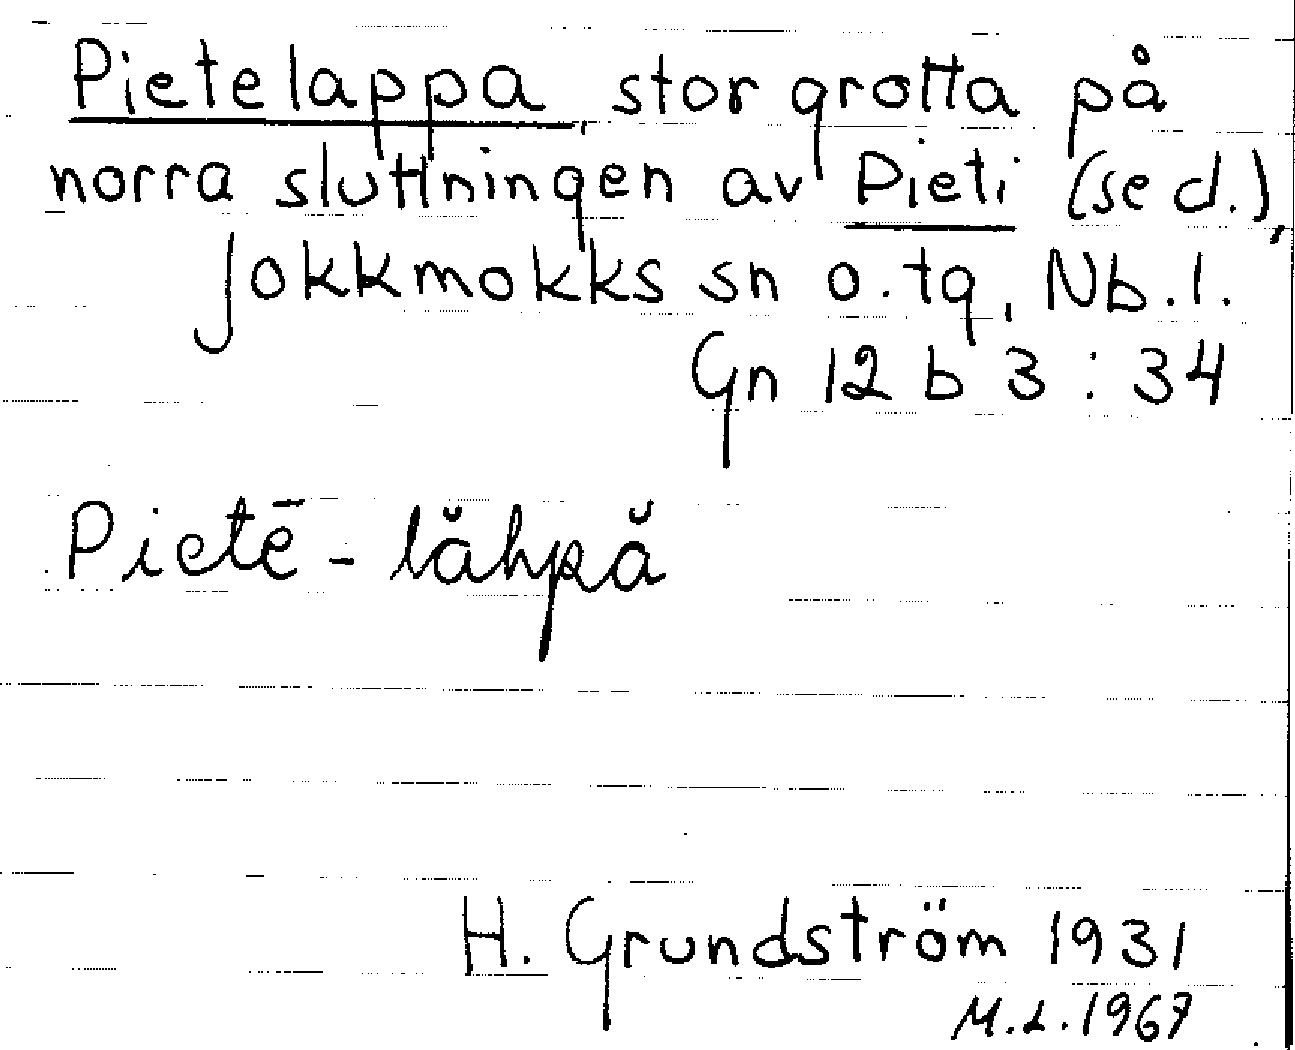 Pietelappa, stor grotta på
norra sluttningen av Pieti (se d.),
Jokkmokks sn o. tg, Nb.l.
Gn 12 b 3 : 34
Pietē - lăhpă
H. Grundström 1931
M.L. 1967